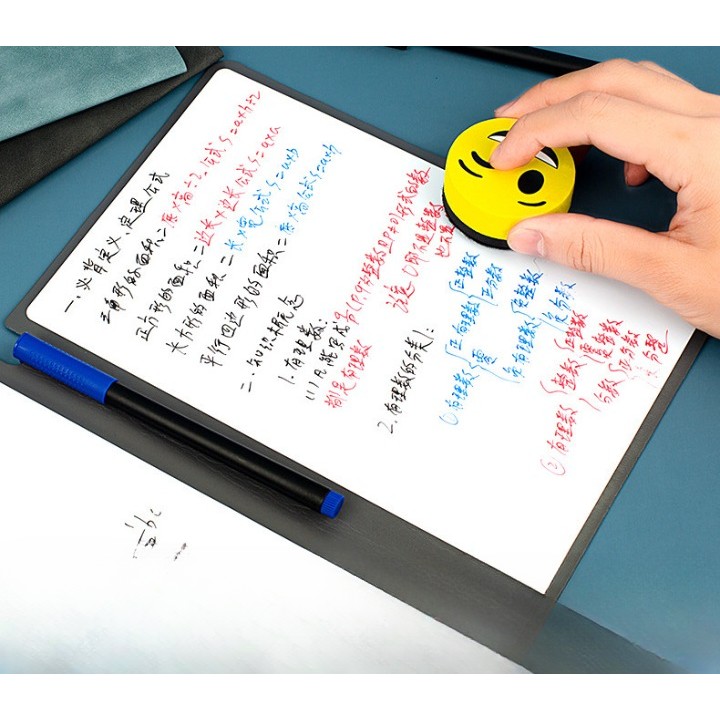 一.必背定义、定理公式
三角形的面积=底×高÷2.公式S=a×h÷2
正方形的面积=边长×边长 公式S=a×a
长方形的面积=长×宽 公式S=a×b
平行四边形的面积=底×高 公式S=a×h
二.知识术概念
1.有理数:
(1)凡能写成
形式的数
都是有理数
注意:0即不是正数
也不是
2.有理数的分类:
①有理数
正有理数
正整数
正分数
零
负有理数
负整数
负分数
②有理数
整数
正整数
零
负整数
分数
正分数